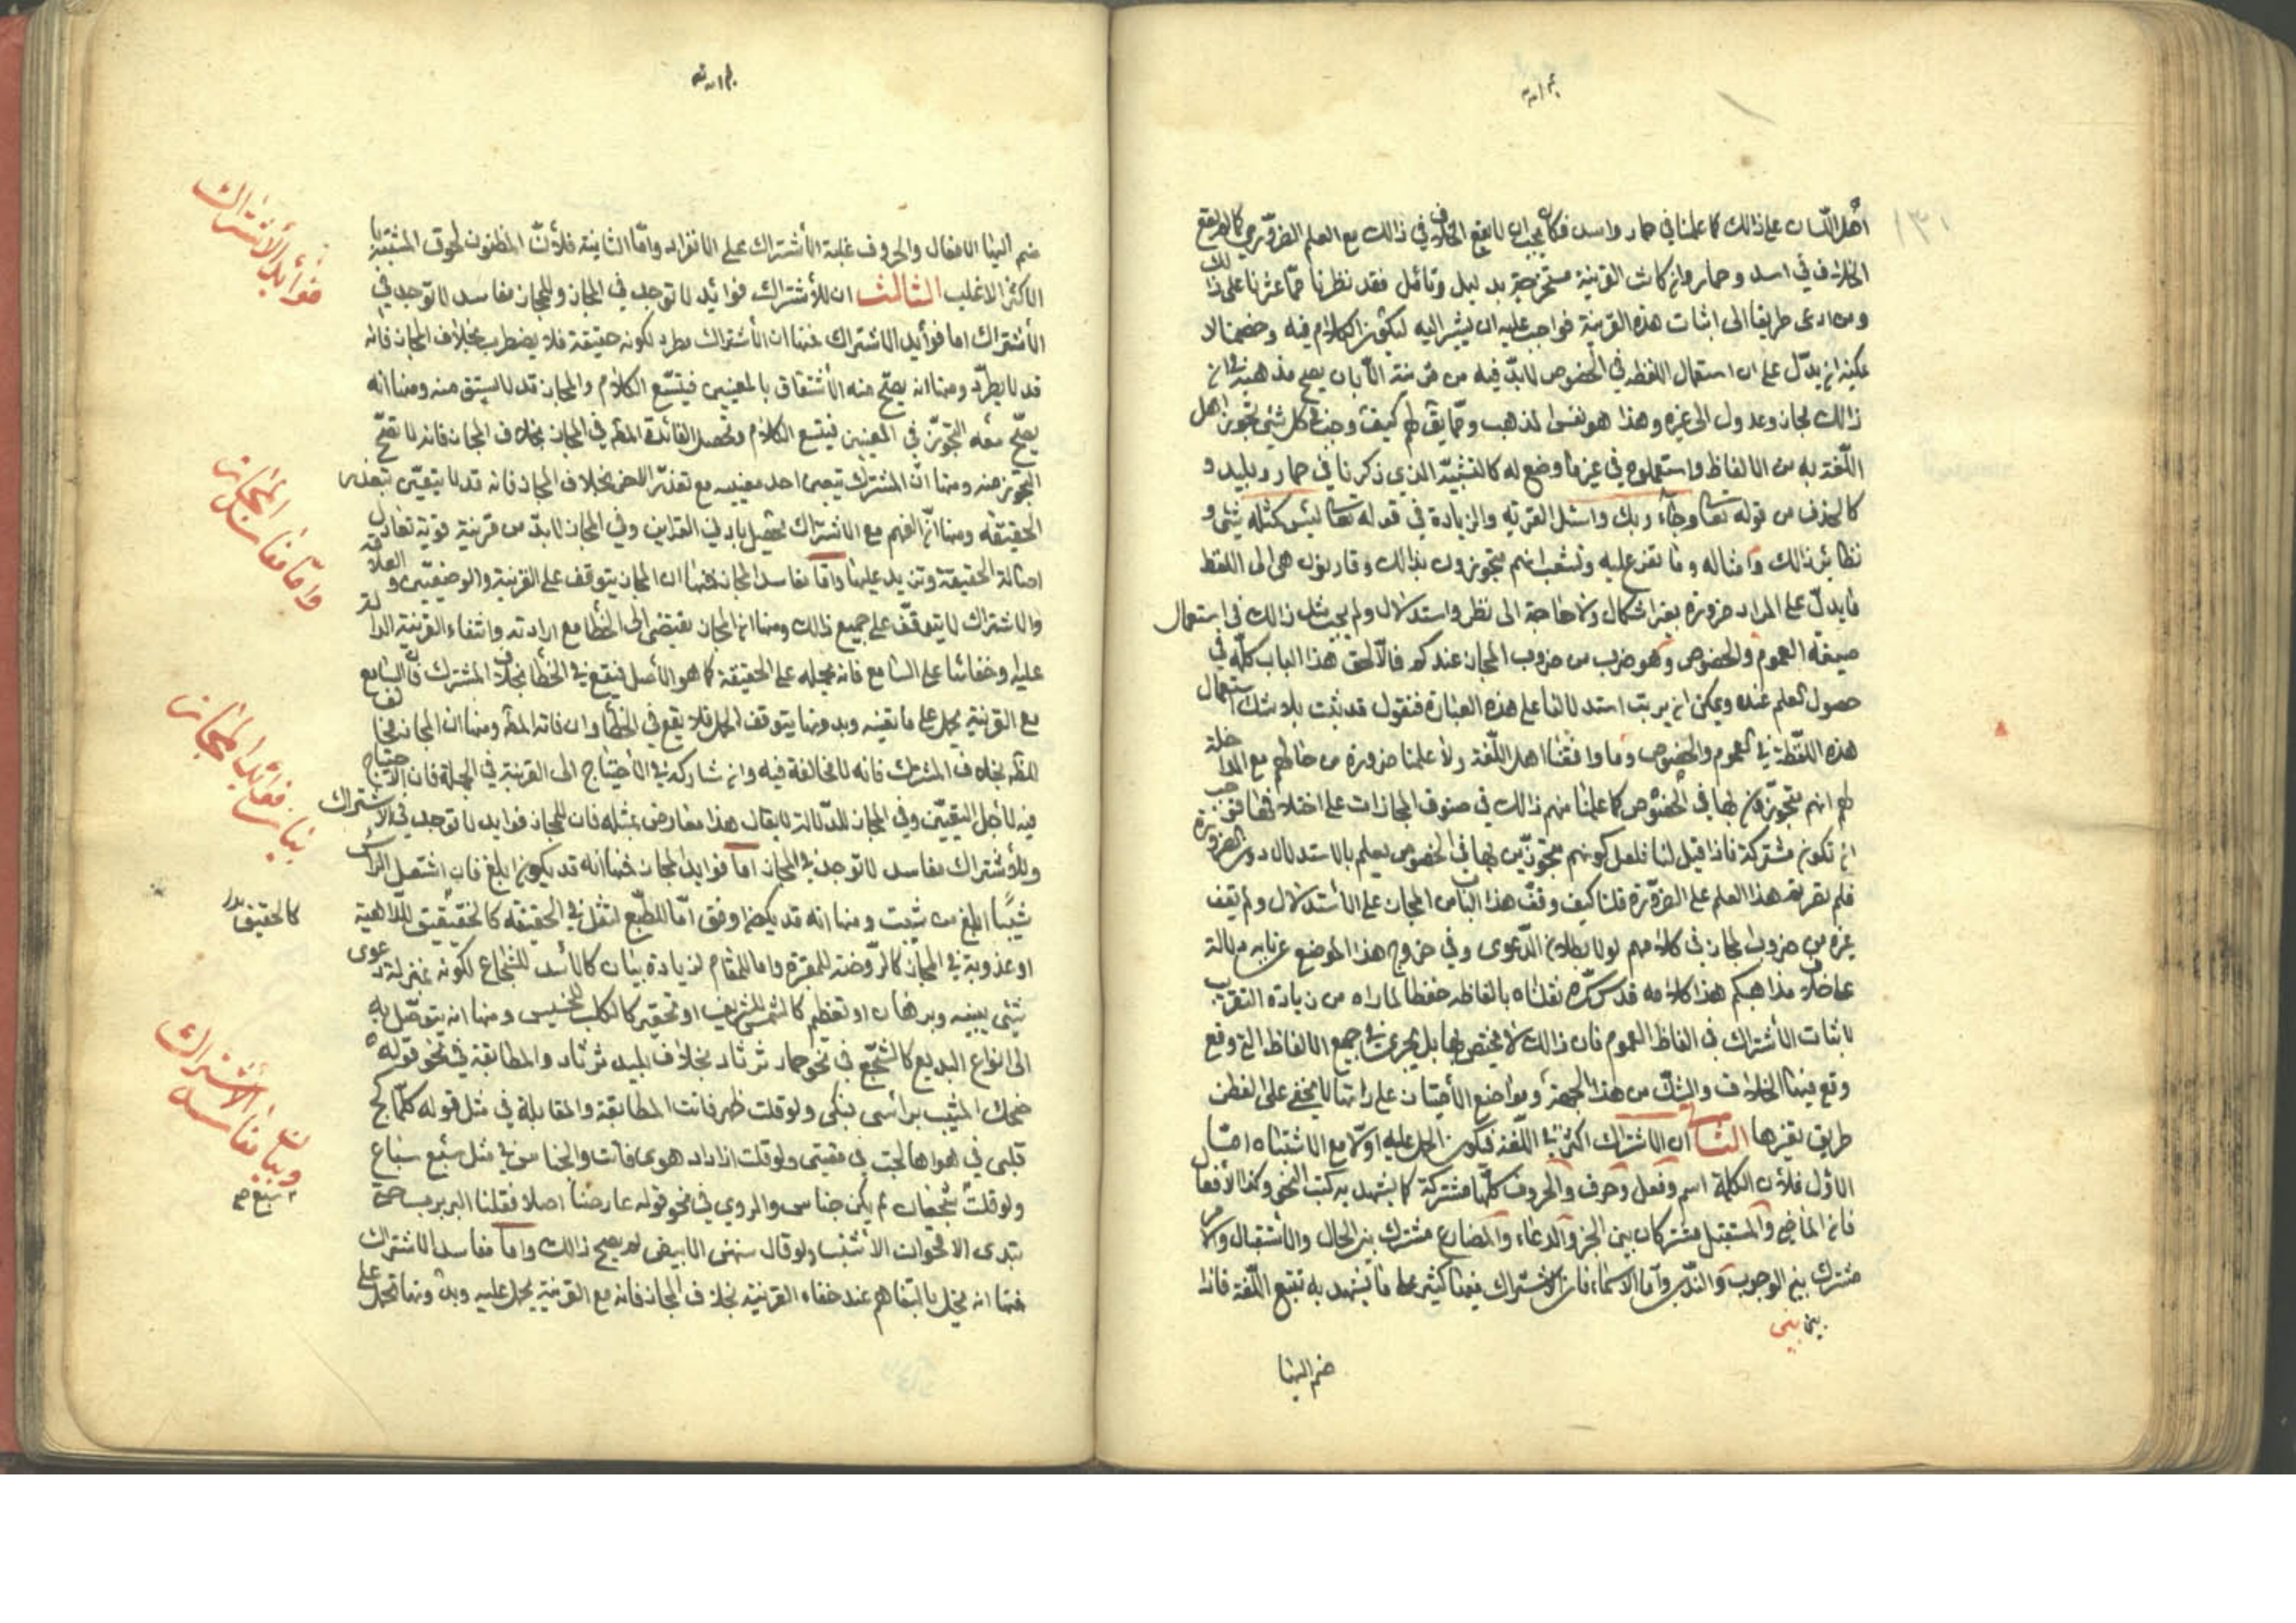 اهل اللسان على ذالك كما علمنا في حمار واسد فكان يجب ان لا يقع الخلاف في ذالك مع العلم الضروري كما لم يقع
الخلاف في اسد وحمار وان كانت القرينة مستخرجة بدليل وتأمل فقد نظرنا فما عثرنا على ذلك
ومن ادعى طريقا الى اثبات هذه القرينة فواجب عليه ان يشير اليه ليكون الكلام فيه وخصمنا لا
يمكنه ان يدل على ان استعمال اللفظة في الخصوص لا بد فيه من قرينة الا بان يصح مذهبه في ان
ذالك مجاز وعدول الى غيره وهذا هو نفس المذهب ومما يق لهم كيف وجب في كل شيء تجوز اهل
اللغة به من الالفاظ واستعملوه في غير ما وضع له كالتشبيه الذي ذكرنا في حمار وبليد و
كالحذف من قوله تعا وجاء ربك واسئل القرية والزيادة في قوله تعا ليس كمثله شئ و
نظاير ذالك وامثاله وما يتفرع عليه ويتشعب انهم متجوزون بذالك وقارنون هي الى اللفظ
ما يدل على المراد ضرورة بغير اشكال ولا حاجة الى نظر واستدلال ولم يجب مثل ذالك في استعمال
صيغة العموم والخصوص وهو ضرب من ضروب المجاز عندكم فالا لحق هذا الباب كله في
حصول العلم عنده ويمكن ان يرتب استدلالنا على هذه العبارة فنقول قد ثبت بلا شك استعمال
هذه اللفظة في العموم والخصوص وما وافقنا اهل اللغة ولا علمنا ضرورة من حالهم مع المداخلة
لهم انهم متجوزون بها في الخصوص كما علمنا منهم ذالك في صنوف المجازات على اختلافها فوجب
ان تكون مشتركة فاذا قيل لنا فلعل كونهم متجوزين بها في الخصوص يعلم بالاستدلال دون الضرورة
فلم نصرف هذا العلم على الضرورة قلنا كيف وقف هذا الباب من المجاز على الاستدلال ولم يقف
غيره من ضروب المجاز في كلامهم لولا بطلان الدعوى وفي خروج هذا الموضع عن بابه دلالة
على خلاف مذاهبكم هذا كلامه قد كرره نقلناه بالفاظه حفظا لما راه من زيادة التقريب
لاثبات الأشتراك في الفاظ العموم فان ذالك لا يختص بها بل يجري في جميع الالفاظ التي وقع
وقع فيها الخلاف والشك من هذا الجهة ومواضع الأختبار على راتها لا يخفى على الفطن
طريق تقيزها الثاني ان الاشتراك اكثر في اللغة فيكون الحمل عليه اولى مع الاشتباه اما
الاول فلأن الكلمة اسم وفعل وحرف والحروف كلها مشتركة كما يشهد به كتب النحو وكذا الأفعال
فان الماضي والمستقبل مشتركان بين الخبر والدعاء والمضارع مشترك بين الحال والاستقبال والامر
مشترك بين الوجوب والندب واما الاسماء فان الاشتراك فيها كثير على ما يشهد به تتبع اللغة فاذا
بين بين
ضم اليها
ضم اليها الافعال والحروف غلبة الأشتراك على الانفراد واما الثانية فلأن المظنون لحوق المشتبه با
الاكثر الاغلب الثالث ان للأشتراك فوائد لا توجد في المجاز وللمجاز مفاسد لا توجد في
الأشتراك اما فوايد الاشتراك فمنها ان الأشتراك مطرد لكونه حقيقة فلا يضطرب بخلاف المجاز فانه
قد لا يطرد ومنها انه يصح منه الأشتقاق بالمعنيين فيتسع الكلام والمجاز قد لا يشتق منه ومنها انه
يصح منه التجوز في المعنيين فيتسع الكلام وتحصل الفائدة المط في المجاز بخلاف المجاز فانه لا يصح
التجوز منه ومنها ان المشترك يتعين احد معنييه مع تعذر الاخر بخلاف المجاز فانه قد لا يتعين بتعذر
الحقيقة ومنها ان الفهم مع الاشتراك يحصل بادنى القراين وفي المجاز لا بد من قرينة قوية تعادل
اصالة الحقيقة وتزيد عليها واما مفاسد المجاز فمنها ان المجاز يتوقف على القرينة والوضعين والعلاقة
والاشتراك لا يتوقف على جميع ذالك ومنها ان المجاز يقتضي الى الخطأ مع ارادته وانتفاء القرينة الدالة
عليه وخفائها على السامع فانه يحمله على الحقيقة كما هو الأصل فيقع في الخطأ بخلاف المشترك فان السامع
مع القرينة يحمل على ما تقيه وبدونها يتوقف الحمل فلا يقع في الخطأ وان فاته المط ومنها ان المجاز مخالف
للظ بخلاف المشترك فانه لا مخالفة فيه وان شاركه في الأحتياج الى القرينة في الجملة فان الاحتياج
فيه لأجل التعيين وفي المجاز للدلالة لا يقال هذا معارض بمثله فان للمجاز فوايد لا توجد في الاشتراك
وللأشتراك مفاسد لا توجد في المجاز اما فوايد المجاز فمنها انه قد يكون ابلغ فان اشتعل الرأس
شيبا ابلغ من شبت ومنها انه قد يكون اوفق اما للطبع لثقل في الحقيقة كالخنفقيق للداهية
او عذوبة في المجاز كالروضة للمقبرة واما للمقام لزيادة بيان كالأسد للشجاع لكونه بمنزلة دعوى
شئ ببينه وبرهان او تعظيم كالشمس للشريف او تحقير كالكلب للخسيس ومنها انه يتوصل به
الى انواع البديع كالسجع في نحو حمار ثرثار بخلاف بليد ثرثار والمطابقة في نحو قوله
ضحك المشيب برأسى فبكى ولو قلت ظهر فاتت المطابقة والمقابلة في مثل قوله كلما لج
قلبى في هواها لجت في مقتى ولو قلت ازداد هوى فات والجناس في مثل سبع سباع
ولو قلت شجعان لم يكن جناس والروي في نحو قوله عارضنا اصلا فقلنا الربرب حتى
تبدى الاقحوان الأشنب ولو قال سنهن الابيض لم يصح ذالك واما مفاسد الاشتراك
فمنها انه يخل بالتفاهم عند خفاء القرينة بخلاف المجاز فانه مع القرينة يحمل عليه وبدونها تحمل على
فوائد الأشتراك
واما مفاسد المجاز
بيان فوائد المجاز
وبيان مفاسد الأشتراك